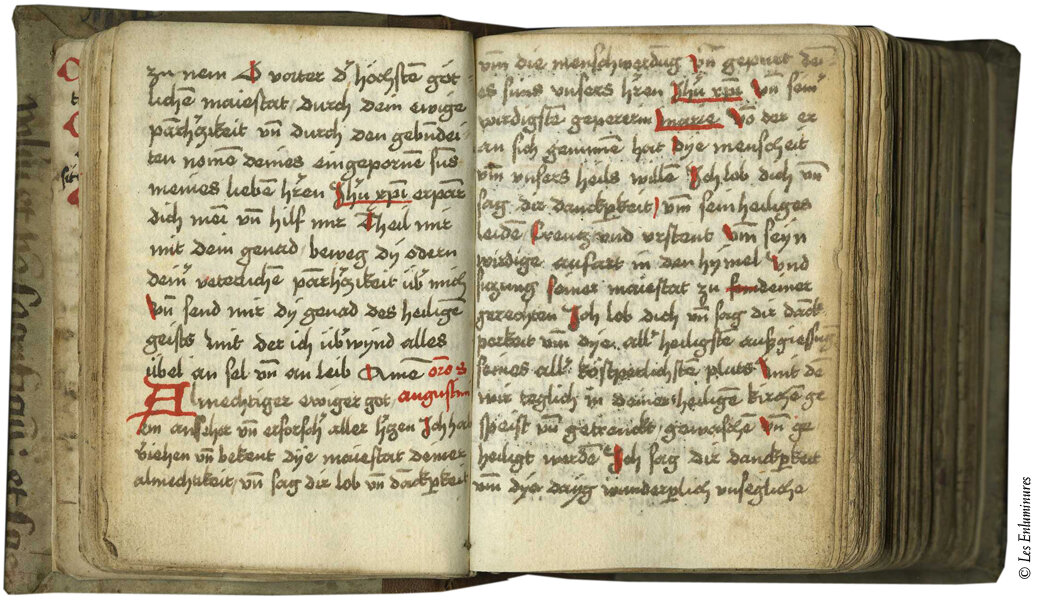 zu nem O vorter d' höchsten göt-
lichen maiestat durch dem ewige
parh'zikeit vn̄ durch den gebn̄dei
ten nomen deines eingepornē sūs
meines lieben h'ren Jh'u xp̄i erpār
dich mei vn̄ hilf mir Theil mit
mit dein genad beweg dy odern
dein' veterlichē parh'zikeit üb' mich
vn̄ send mir dy genad des heiligē
geists mit der ich üb'wynd alles
übel an sel vn̄ an leib Amē orō s
Almechtiger ewiger got augustini
an vn̄ erforsch aller h'zen Ich hab
viehen vn̄ bekent dye maiestat deiner
almechtikeit vn̄ sag dir lob vn̄ dāckp'keit
vm̄ die menschwerdūg vn̄ gepurt dei-
es suns unsers h'ren Jh'u xp̄i vn̄ sein
wirdigstē gepererin marie vō der er
an sich genūmen hat dye menscheit
vm̄ unsers heils willē Ich lob dich vn̄
sag dir danckp'keit vm̄ sein heiliges
leidē kreutz und urstent vm̄ seyn
wirdige aufart in den hymel und
siczung seiner maiestat zu deiner
gerechten Ich lob dich vn̄ sag dir dāck
perkeit vm̄ dye all' heiligste außgiessūg
seines all' köstperlichste pluts mit dē
wir teglich in deiner heiligē kirchē ge
speist vn̄ getrenckt gewaschē vn̄ ge
heiligt werdē Ich sag dir danckp'keit
vm̄ dye daijg wunderplich unsegliche
© Les Enluminures